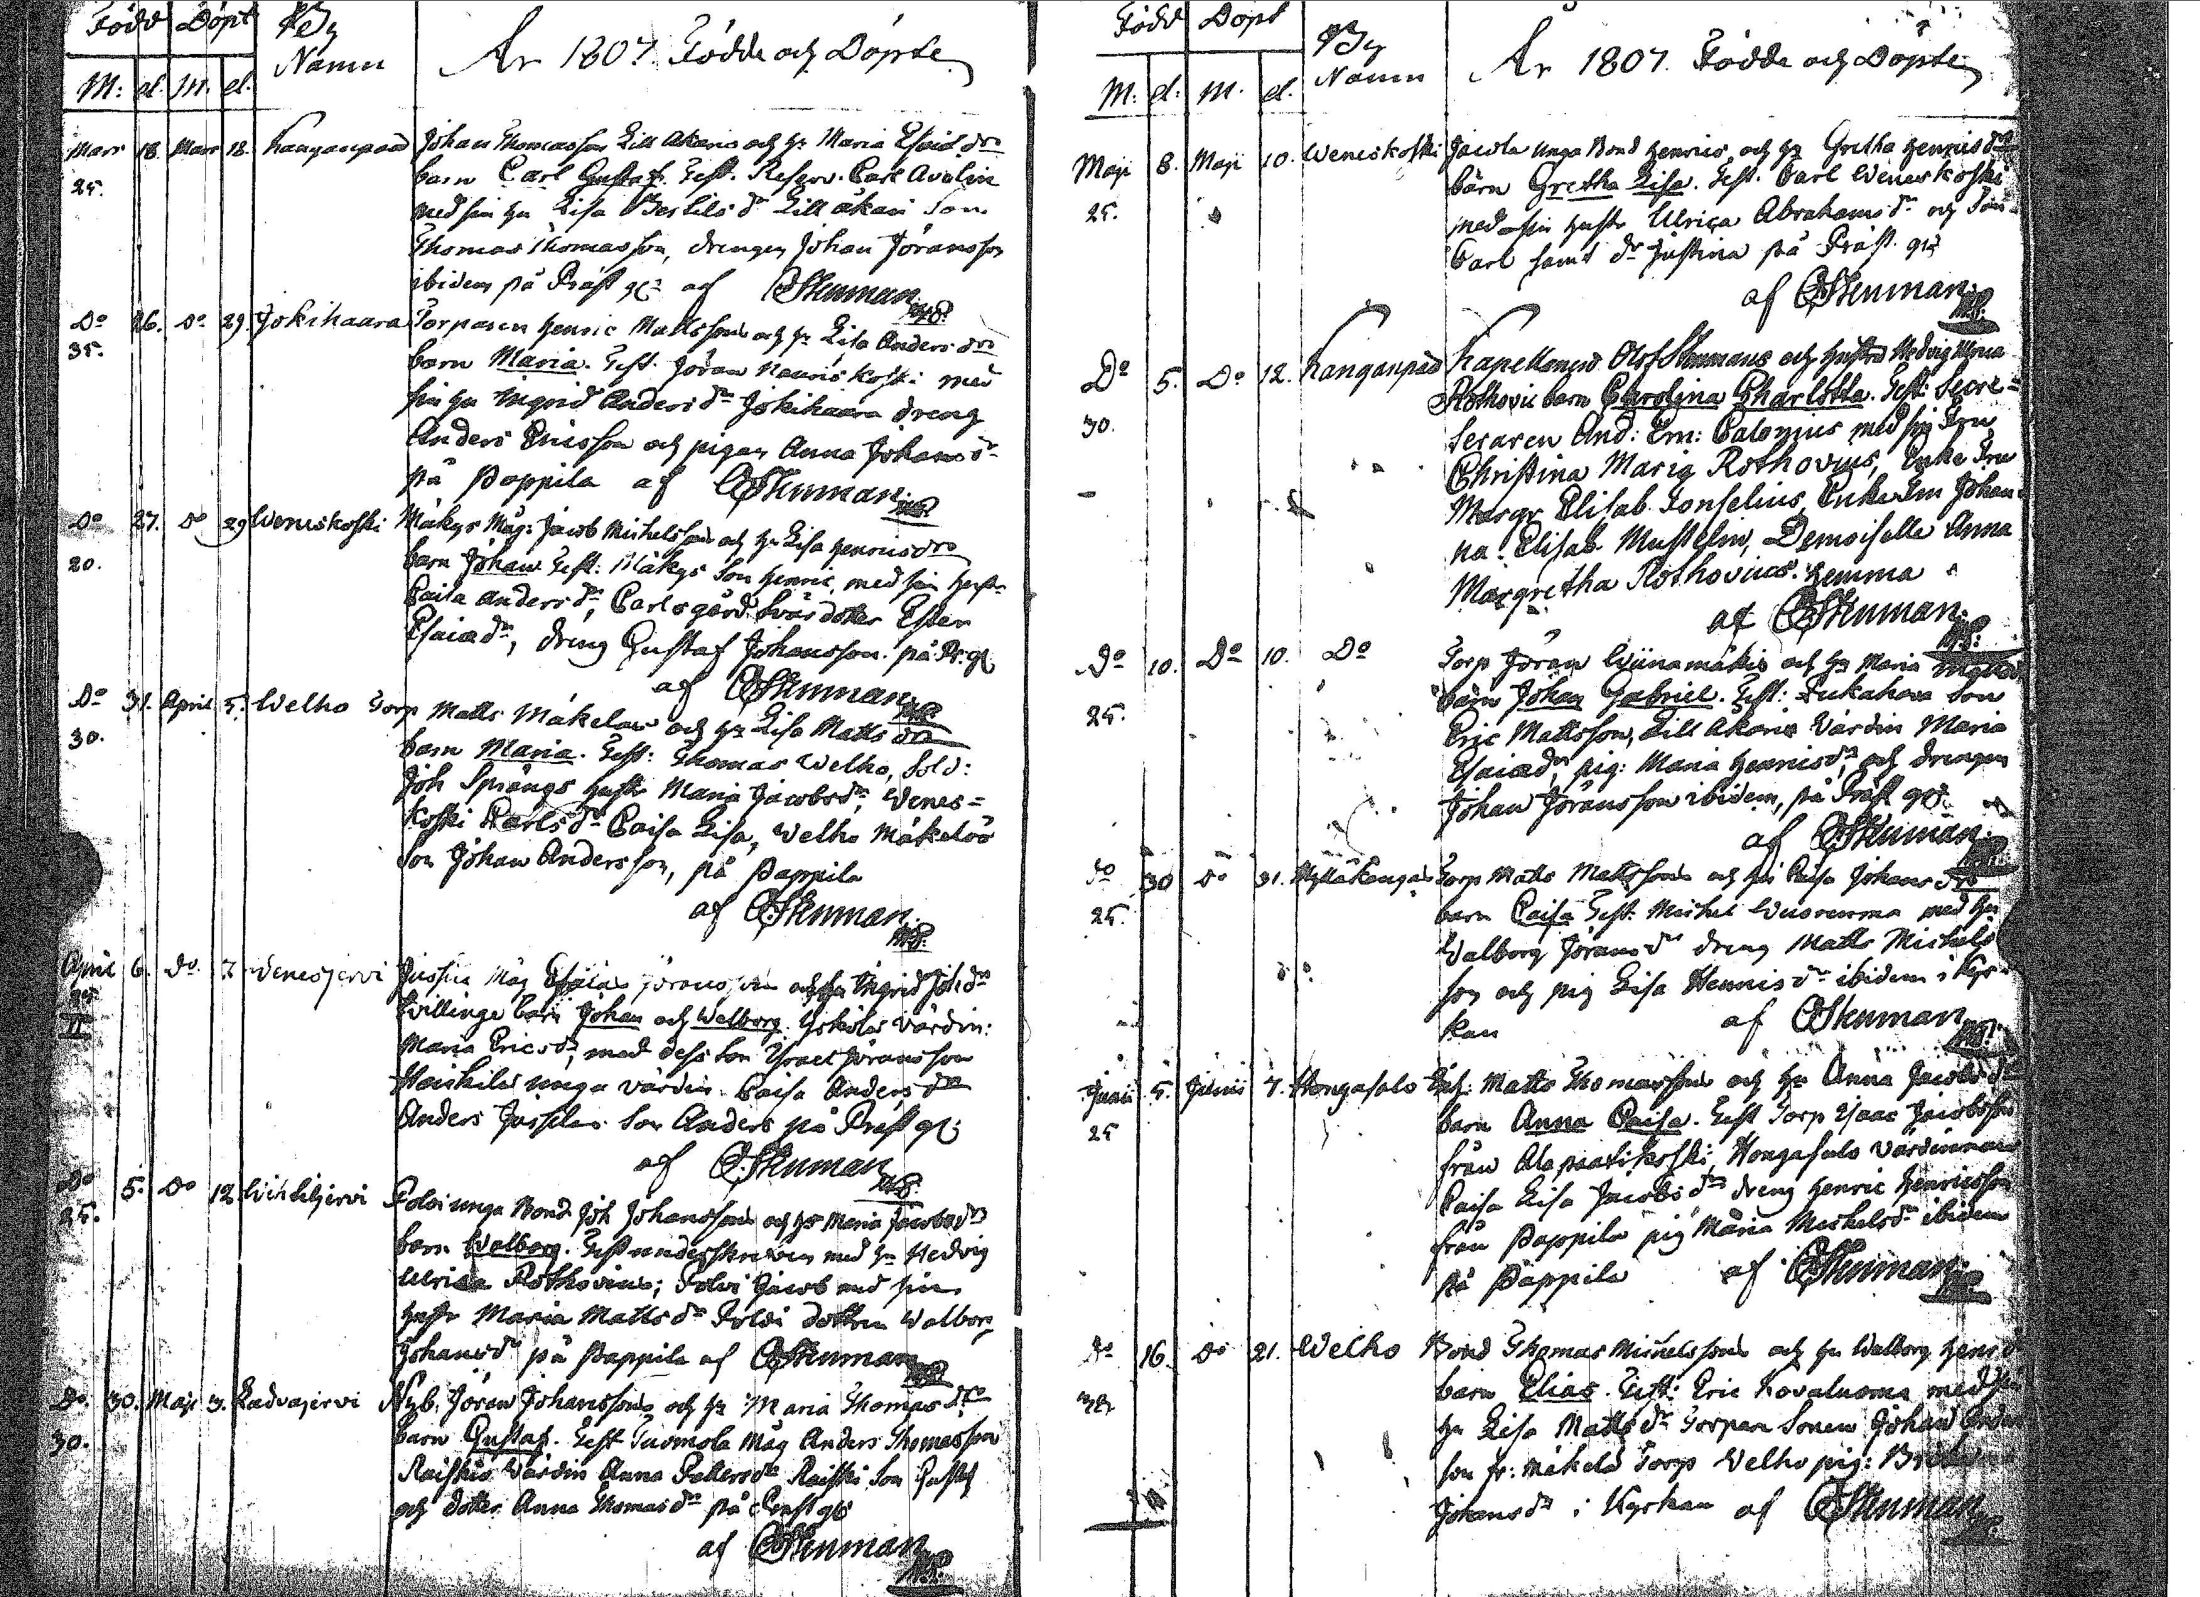 Född Döpt By
Namn
År 1807. Födde och Döpte
M: d. M. d.
Mars 18. Mars 18. Kanganpää Johan Thomasson Lill Akaris och h: Maria Esaiædr
25. barn Carl Gustaf. Test. Reserv. Carl Avelin
med sin hu Lisa dr Lill akari Son
Thomas Thomasson, drengen Johan Jöransson
ibidem på Präst gå af OStenman
Do 26. Do 29. Jokihaara Torparen Henric Mattsons och h: Lisa Andersdr
35. barn Maria. Test. Jöran Nauriskoski med
sin hu Ingrid Andersdr Jokihaara dreng
Anders Ericsson och pigan Anna Johansdr
på Pappila af OStenman
Do 27. Do 29 Weneskoski Mäkys Måg: Jacob Michelsons och hu Lisa Henricsdr
20. barn Johan. Test: Mäkys Son Henric, med sin hustr
Caisa Andersdr, Carlsgård Svärdotter Ester
Esaiædr, dreng Gustaf Johansson. på Pr. gå
af OStenman
Do 31. April 5. Welho Torp Matts Mäkelas och h: Lisa Mattsdr
30. barn Maria. Test: Thomas Welho, Sold:
Joh Sprängs hustr Maria Jacobsdr, Venes=
koski Karlsdr Caisa Lisa, Welho Mäkelös
Son Johan Andersson, på Pappila
af OStenman
April 6. Do. 7 Venesjervi Jussin Måg Esaias Jöransson och hu Ingrid Johdr
II Tvillinge barn Johan och Walborg. värdin:
Maria Ericsdr, med dess Son Israel Jöransson
Heiskilas unga värdin Caisa Andersdr
Anders Jussilas Son Anders på Präst gå
af OStenman
Do 5. Do 12. Polvi unga Bond. Joh Johanssons och h: Maria Jacobsdr
25. barn Walborg. Test underskrifven med hu Hedvig
Ulrica Rothovius; Polvi Jacob med sin
hustr Maria Mattsdr Polvi dottren Walborg
Johansdr på Pappila af OStenman
Do. 30. Maji 3. Nyb. Jöran Johanssons och h: Maria Thomasdr
30. barn Gustaf. Test Tuomola Måg Anders Thomasson
Raiskis Värdin Anna Pettersdr Raiski Son Gustaf
och dotter Anna Thomasdr på Präst gå
af OStenman
Född Döpt By
Namn
År 1807. Födde och Döpte
M: d: M. d.
Maji 8. Maji 10. Weneskoski Jacola unga Bond Henrics och h: Gretha Henricsdr
25. barn Gretha Lisa. Test. Carl Weneskoski
med sin hustr Ulrica Abrahamsdr och Son
Carl samt dr Justina på Präst. gå
af OStenman
Do 5. Do 12. Kanganpää Kapellanens Olof Stenmans och hustrus Hedvig Ulrica
30. Rothovii barn Carolina Charlotta. Test: Secre=
teraren And: Em: Calonius med sin Fru
Christina Maria Rothovius, Enke Fru
Margr Elisab. Tonselius, Enke Fru Johan=
na: Elisab. Mustelin, Demoiselle Anna
Margretha Rothovius. hemma
af OStenman
Do 10. Do 10. Do Torp Jöran Wiinamäkis och h: Maria
25. barn Johan Gabriel. Test: Son
Eric Mattsson, Lill Akaris Värdin Maria
Esaiædr, pig: Maria Henricsdr, och drengen
Johan Jöransson ibidem, på Präst gå
af OStenman
Do 30 Do 31. Mylläkangas Torp Matts Mattssons och h: Caisa Johansdr
25. barn Caisa Test: Michel Wuorenma med hu
Walborg Jöransdr dreng Matts Michels
son och pig Lisa Henricsdr ibidem i Kyr=
kan af OStenman
Junii 5. Junii 7. Hongasalo Matts Thomassons och h: Anna Jacobsdr
25 barn Anna Caisa. Test Torp Isaac Jacobsson
från Alapaatikoski, Hongasalo värdinnan
Caisa Lisa Jacobsdr dreng Henric Henricsson
från Pappila pig Maria Michelsdr ibidem
på Pappila af OStenman
Do 16. Do 21. Welho Bond Thomas Michelssons och hu Walborg Henrsdr
barn Elias. Test: Eric Kovaluoma med sin
hu Lisa Mattsdr Torpare Sonen Johan Anders
son fr: Mäkelä Torp Welho pig:
Johansdr i Kyrkan af OStenman